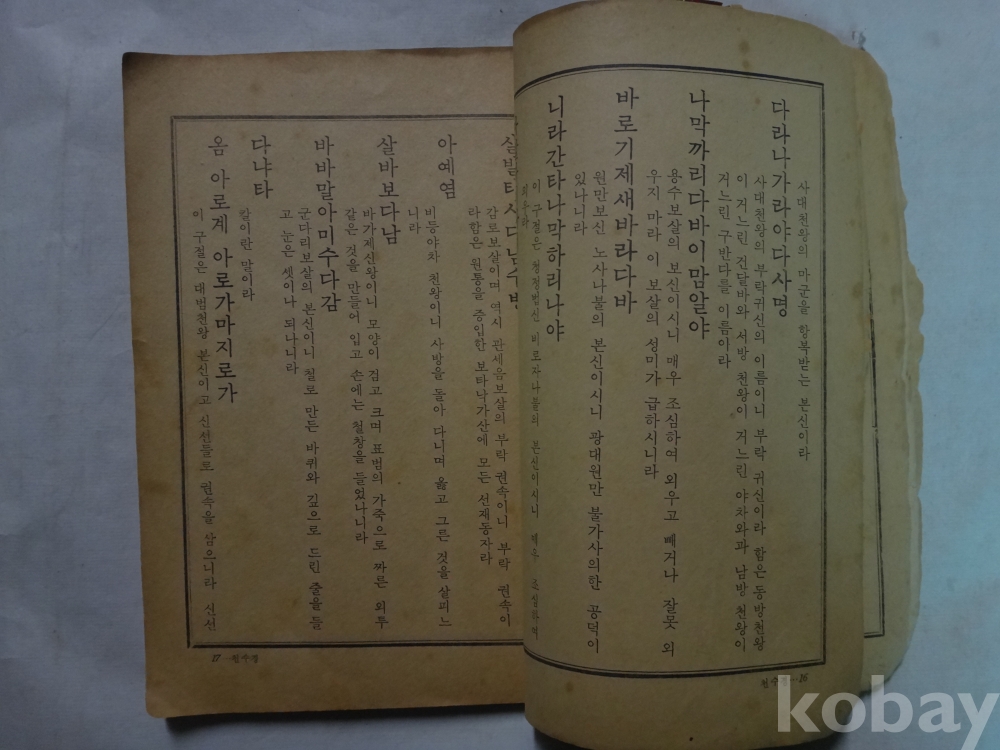 사대천왕의 마군을 항복받는 본신이라
다라나가라야다사명
사대천왕의 부락귀신의 이름이니 부락 귀신이라 함은 동방천왕
이 거느린 건달바와 서방 천왕이 거느린 야차와과 남방 천왕이
거느린 구반다를 이름이라
나막까리다바이맘알야
용수보살의 보신이시니 매우 조심하여 외우고 빼거나 잘못 외
우지 마라 이 보살의 성미가 급하시니라
바로기제새바라다바
원만보신 노사나불의 본신이시니 광대원만 불가사의한 공덕이
있나니라
니라간타나막하리나야
이 구절은 청정법신 비로자나불의 본신이시니 매우 조심하여
외우라
살발타사다남수반
감로보살이며 역시 관세음보살의 부락 권속이니 부락 권속이
라함은 원통을 증입한 보타낙가산에 모든 선재동자라
아예염
비등야차 천왕이니 사방을 돌아 다니며 옳고 그른 것을 살피느
니라
살바보다남
바가제신왕이니 모양이 검고 크며 표범의 가죽으로 짜른 외투
같은 것을 만들어 입고 손에는 철창을 들었나니라
바바말아미수다감
군다리보살의 본신이니 철로 만든 바퀴와 깊으로 드린 줄을 들
고 눈은 셋이나 되나니라
다냐타
칼이란 말이라
옴 아로계 아로가마지로가
이 구절은 대범천왕 본신이고 신선들로 권속을 삼으니라 신선
17 천수경
천수경 16
kobay